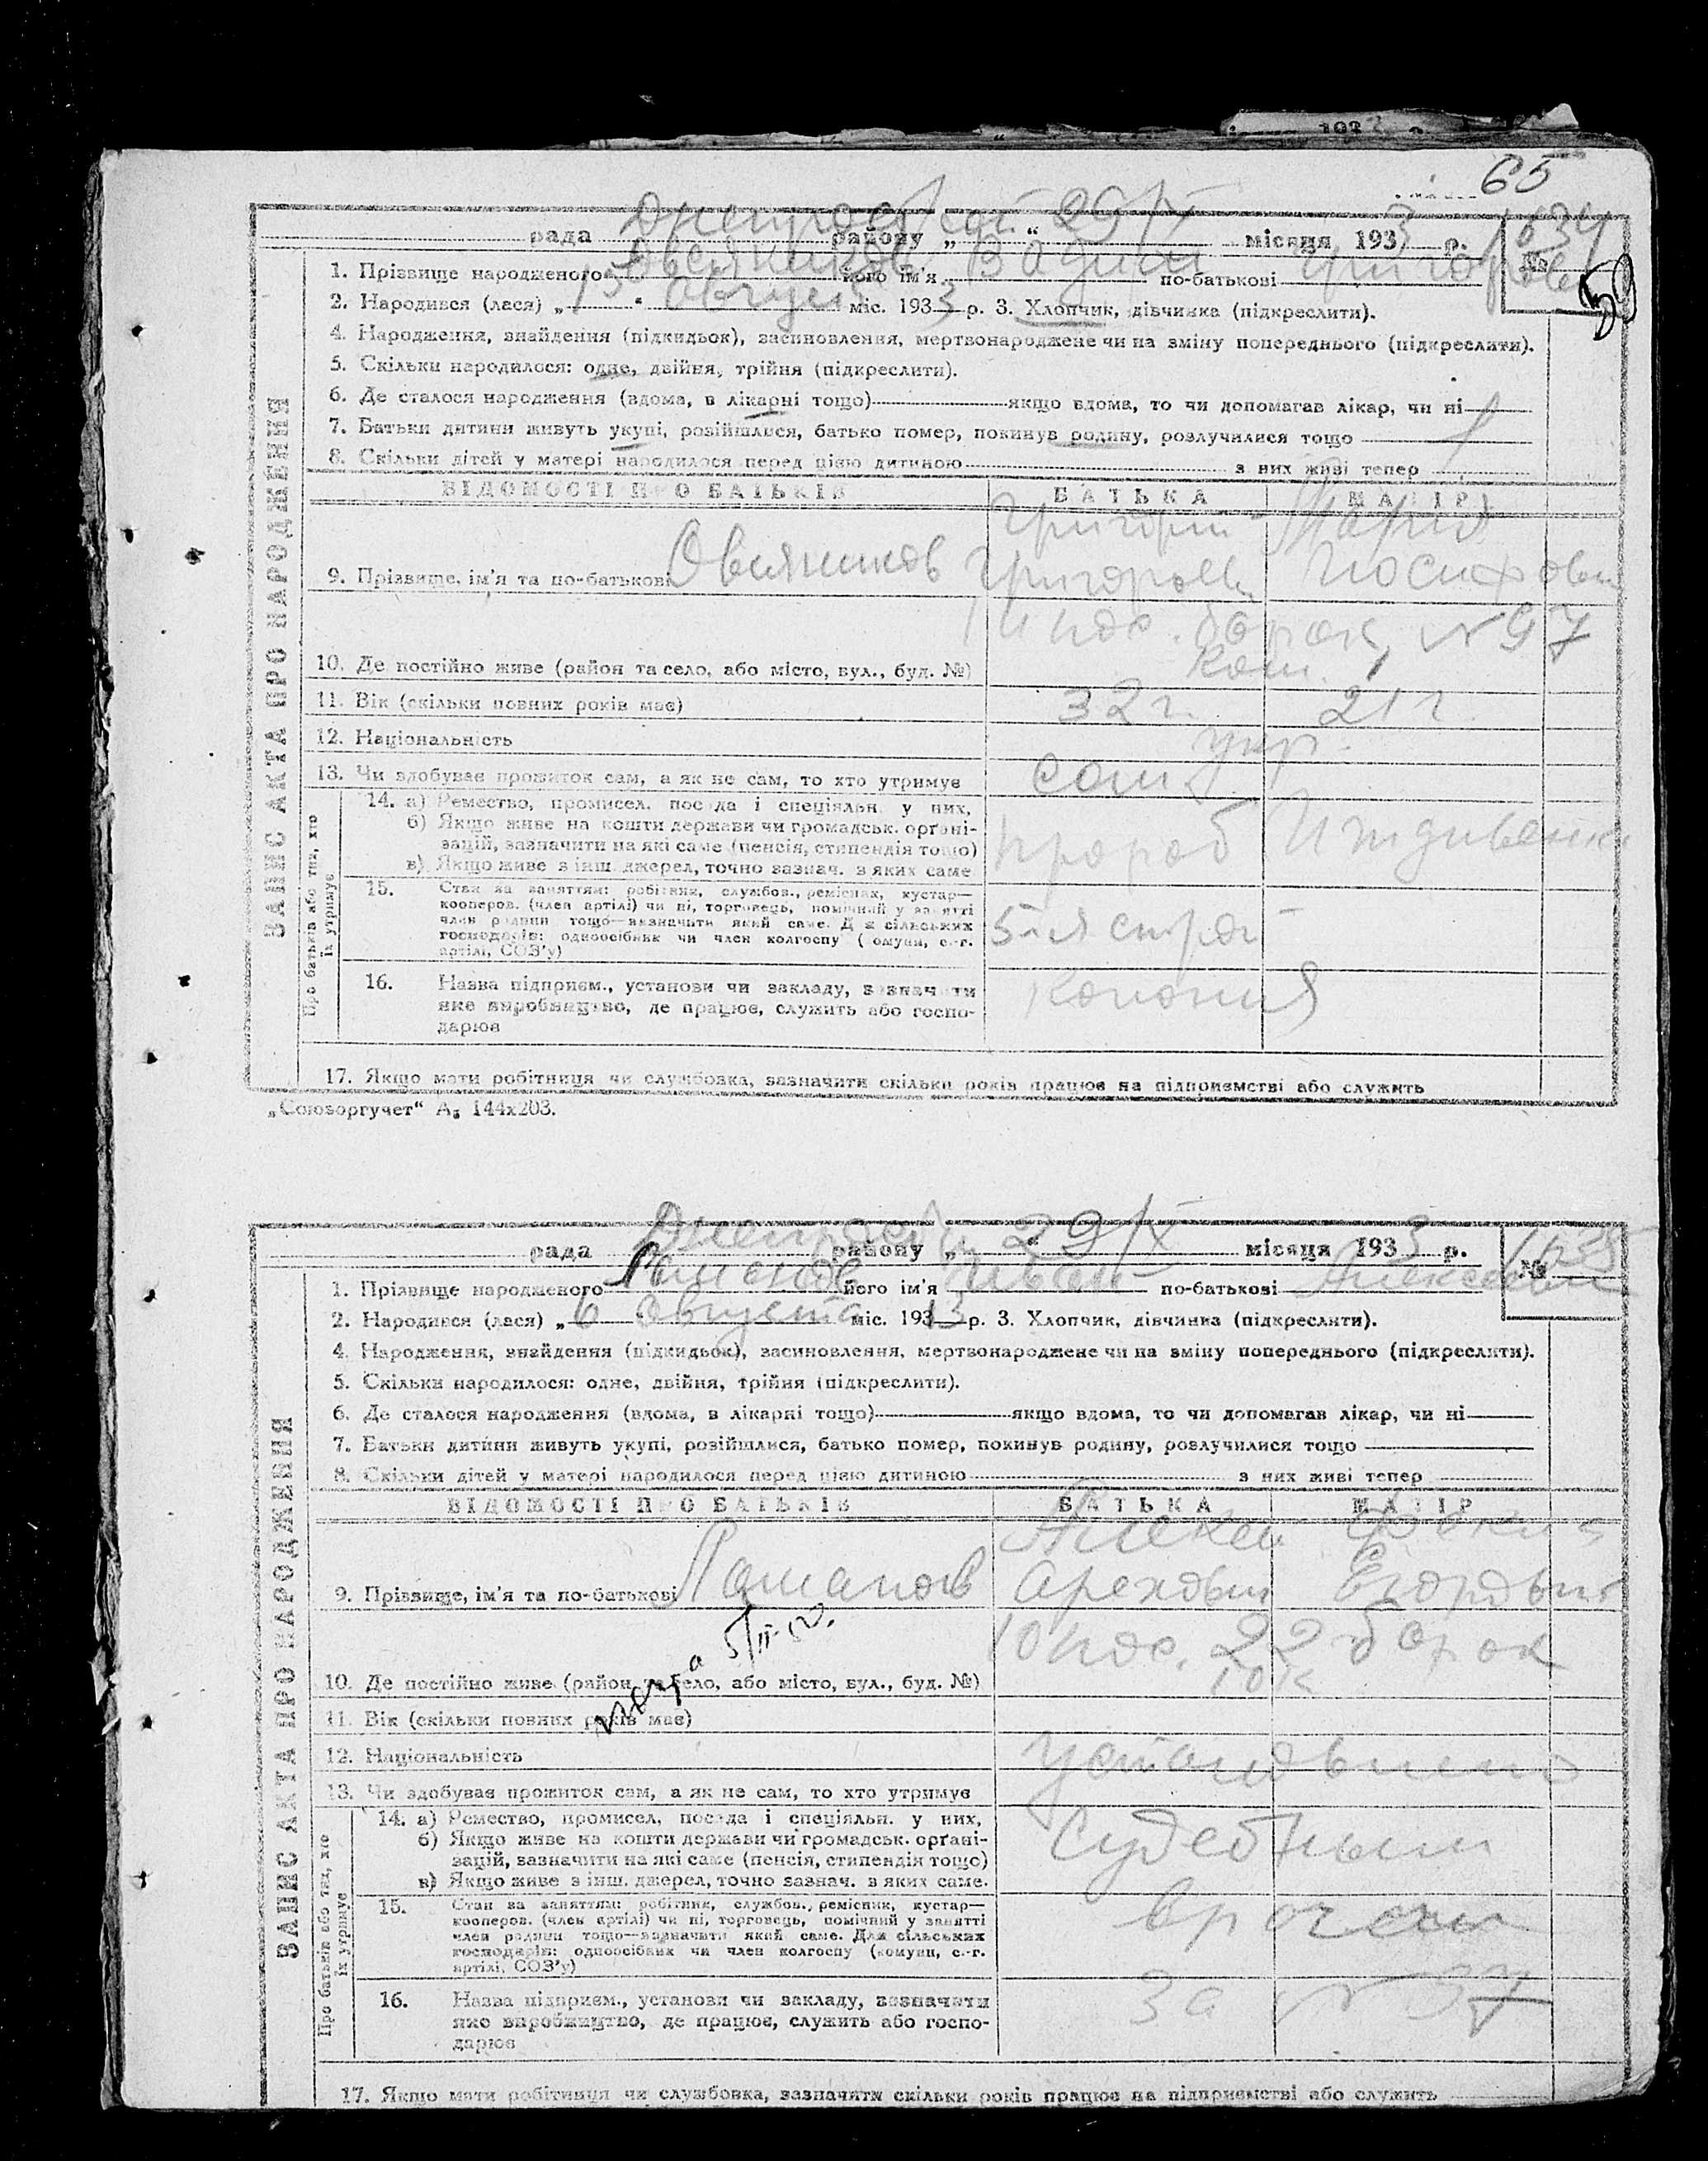 65
рада Днепрострой району „29/IX“ місяця 1933 р. № 1634
1. Прізвище народженого Овсяников його ім'я Вадим по-батькові Григоров
59
2. Народився (лася) „ “ август міс. 1933 р. 3. Хлопчик, дівчинка (підкреслити).
4. Народження, знайдення (підкидьок), засиновлення, мертвонароджене чи на зміну попереднього (підкреслити).
5. Скільки народилося: одне, двійня, трійня (підкреслити).
6. Де сталося народження (вдома, в лікарні тощо) якщо вдома, то чи допомагав лікар, чи ні
7. Батьки дитини живуть укупі, розійшлися, батько помер, покинув родину, розлучилися тощо
8. Скільки дітей у матері народилося перед цією дитиною з них живі тепер
ЗАПИС АКТА ПРО НАРОДЖЕННЯ
ВІДОМОСТІ ПРО БАТЬКІВ БАТЬКА МАТІР
Григорий Мария
9. Прізвище, ім'я та по-батькові Овсяников Григоров Иосифовн
пос. барак № 97
10. Де постійно живе (район та село, або місто, вул., буд. №) ком.
11. Вік (скільки повних років має) 32 г. 21 г.
12. Національність укр.
13. Чи здобуває прожиток сам, а як не сам, то хто утримує сам
Про батьків або тих, хто їх утримує
14. а) Ремество, промисел, посада і спеціяльн. у них,
б) Якщо живе на кошти держави чи громадськ. орґані-
зацій, зазначити на які саме (пенсія, стипендія тощо) прораб Иждивенка
в) Якщо живе з інш. джерел, точно зазнач. з яких саме
15. Стан за заняттям: робітник, службов., ремісник, кустар—
кооперов. (член артілі) чи ні, торговець, помічний у занятті
член родини тощо—зазначити який саме. Для сільських
господарів: одноосібник чи член колгоспу (комуни, с.-г.
артілі, СОЗ'у)
16. Назва підприєм., установи чи закладу, зазначити
яке виробництво, де працює, служить або госпо-
дарює
колония
17. Якщо мати робітниця чи службовка, зазначити скільки років працює на підприємстві або служить
„Союзоргучет“ А5 144х203.
рада Днепрострой району „29/IX“ місяця 1933 р. № 1635
1. Прізвище народженого його ім'я Иван по-батькові Алексеевич
2. Народився (лася) „6 августа міс. 1913 р. 3. Хлопчик, дівчинка (підкреслити).
4. Народження, знайдення (підкидьок), засиновлення, мертвонароджене чи на зміну попереднього (підкреслити).
5. Скільки народилося: одне, двійня, трійня (підкреслити).
6. Де сталося народження (вдома, в лікарні тощо) якщо вдома, то чи допомагав лікар, чи ні
7. Батьки дитини живуть укупі, розійшлися, батько помер, покинув родину, розлучилися тощо
8. Скільки дітей у матері народилося перед цією дитиною з них живі тепер
ЗАПИС АКТА ПРО НАРОДЖЕННЯ
ВІДОМОСТІ ПРО БАТЬКІВ БАТЬКА МАТІР
Алексей
9. Прізвище, ім'я та по-батькові Егоровна
10 пос. 22 барак
10. Де постійно живе (район та село, або місто, вул., буд. №) 10 к
11. Вік (скільки повних років має)
12. Національність Установлено
13. Чи здобуває прожиток сам, а як не сам, то хто утримує
Про батьків або тих, хто їх утримує
14. а) Ремество, промисел, посада і спеціяльн. у них,
б) Якщо живе на кошти держави чи громадськ. орґані- Судебным
зацій, зазначити на які саме (пенсія, стипендія тощо)
в) Якщо живе з інш. джерел, точно зазнач. з яких саме.
15. Стан за заняттям: робітник, службов., ремісник, кустар—
кооперов. (член артілі) чи ні, торговець, помічний у занятті врачем
член родини тощо—зазначити який саме. Для сільських
господарів: одноосібник чи член колгоспу (комуни, с.-г.
артілі, СОЗ'у)
16. Назва підприєм., установи чи закладу, зазначити за № 37
яке виробництво, де працює, служить або госпо-
дарює
17. Якщо мати робітниця чи службовка, зазначити скільки років працює на підприємстві або служить